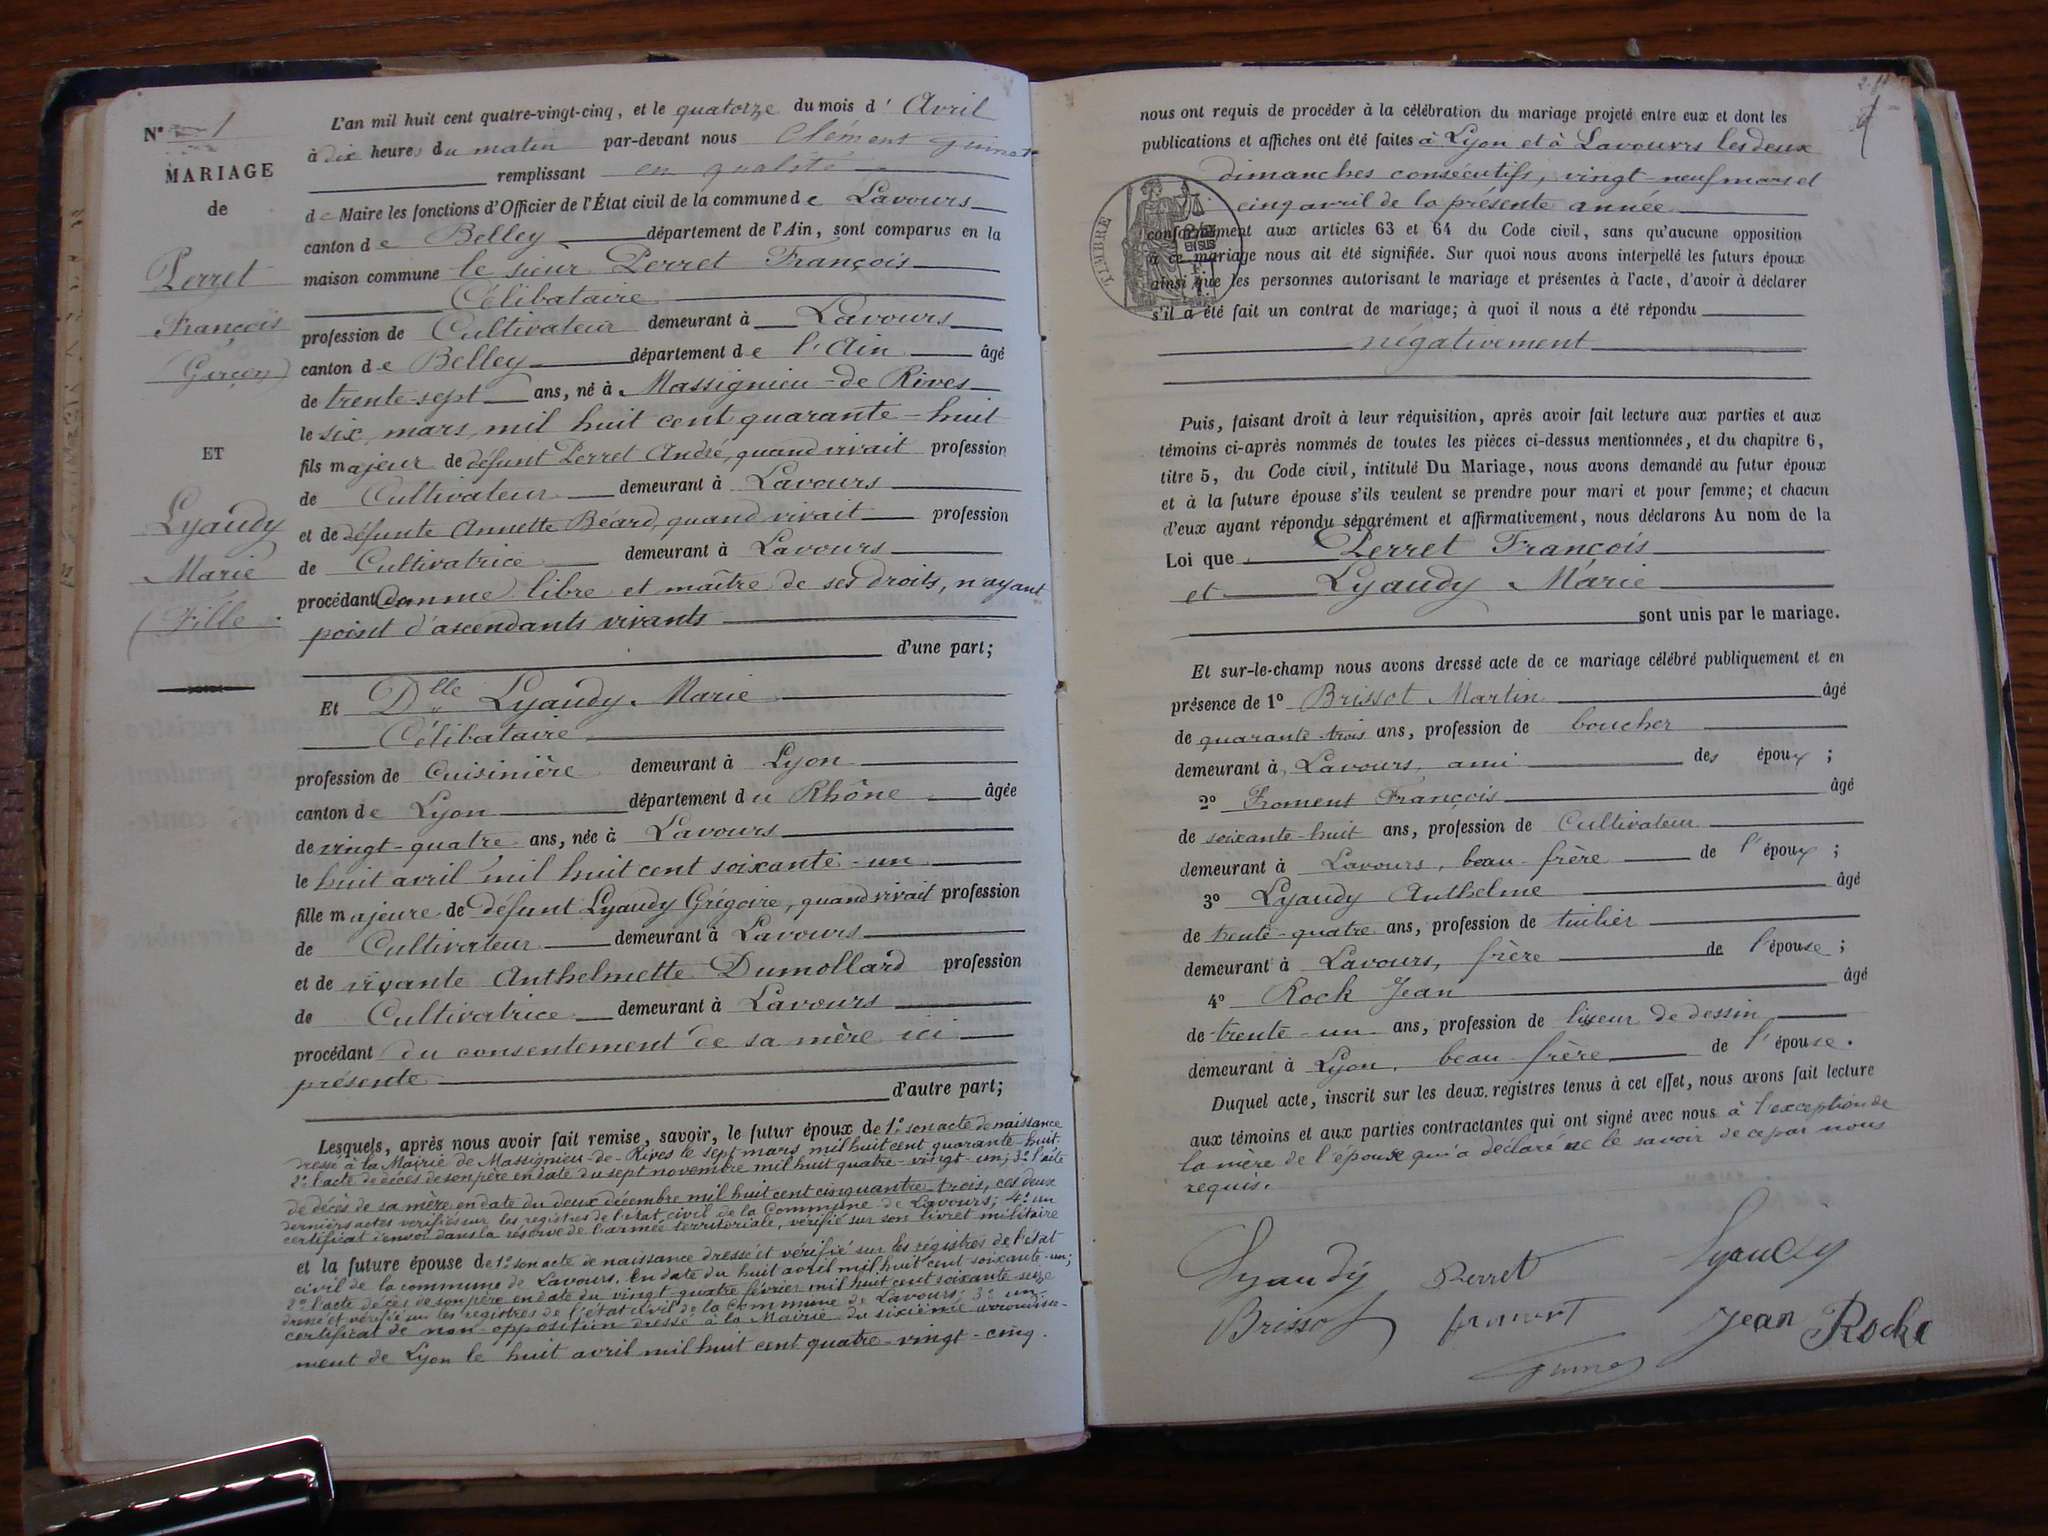 N° 1
MARIAGE
de
Perret
François
(Garçon)
ET
Lyaudy
Marie
(Fille
L'an mil huit cent quatre-vingt-cinq, et le quatorze du mois d' Avril
à dix heures du matin par-devant nous Clément Guinet
remplissant en qualité
de Maire les fonctions d'Officier de l'État civil de la commune de Lavours
canton de Belley département de l'Ain, sont comparus en la
maison commune le sieur Perret François
Célibataire
profession de Cultivateur demeurant à Lavours
canton de Belley département de l'Ain âgé
de trente-sept ans, né à Massignieu-de Rives
le six mars mil huit cent quarante-huit
fils majeur de défunt Perret André, quand vivait profession
de Cultivateur demeurant à Lavours
et de défunte Annette Béard, quand vivait profession
de Cultivatrice demeurant à Lavours
procédant Comme libre et maître de ses droits, n'ayant
point d'ascendants vivants
d'une part;
Et Dlle Lyaudy Marie
Célibataire
profession de Cuisinière demeurant à Lyon
canton de Lyon département du Rhône âgée
de vingt-quatre ans, née à Lavours
le huit avril mil huit cent soixante-un
fille majeure de défunt Lyaudy Grégoire, quand vivait profession
de Cultivateur demeurant à Lavours
et de vivante Anthelmette Dumollard profession
de Cultivatrice demeurant à Lavours
procédant du consentement de sa mère ici
présente
d'autre part;
Lesquels, après nous avoir fait remise, savoir, le futur époux de 1° son acte de naissance
dressé à la Mairie de Massignieu-de-Rives le sept mars mil huit cent quarante-huit;
2° l'acte de décès de son père en date du sept novembre mil huit quatre-vingt-un; 3° l'acte
de décès de sa mère en date du deux décembre mil huit cent cinquante-trois, ces deux
derniers actes vérifiés sur les registres de l'état civil de la Commune de Lavours; 4° un
certificat d'envoi dans la réserve de l'armée territoriale, vérifié sur son livret militaire
et la future épouse de 1° son acte de naissance dressé et vérifié sur les régistres de l'état
civil de la commune de Lavours. En date du huit avril mil huit cent soixante-un;
2° l'acte de décès de son père en date du vingt-quatre février mil huit cent soixante-seize
dressé et vérifié sur les registres de l'état civil de la Commune de Lavours; 3° un
certificat de non-opposition dressé à la Mairie du sixième arrondisse-
ment de Lyon le huit avril mil huit cent quatre-vingt-cinq.
nous ont requis de procéder à la célébration du mariage projeté entre eux et dont les
publications et affiches ont été faites à Lyon et à Lavours les deux
dimanches consécutifs, vingt-neuf mars et
cinq avril de la présente année
conformément aux articles 63 et 64 du Code civil, sans qu'aucune opposition
à ce mariage nous ait été signifiée. Sur quoi nous avons interpellé les futurs époux
ainsi que les personnes autorisant le mariage et présentes à l'acte, d'avoir à déclarer
s'il a été fait un contrat de mariage; à quoi il nous a été répondu
négativement
TIMBRE
EN SUS
Puis, faisant droit à leur réquisition, après avoir fait lecture aux parties et aux
témoins ci-après nommés de toutes les pièces ci-dessus mentionnées, et du chapitre 6,
titre 5, du Code civil, intitulé Du Mariage, nous avons demandé au futur époux
et à la future épouse s'ils veulent se prendre pour mari et pour femme; et chacun
d'eux ayant répondu séparément et affirmativement, nous déclarons Au nom de la
Loi que Perret François
et Lyaudy Marie
sont unis par le mariage.
Et sur-le-champ nous avons dressé acte de ce mariage célébré publiquement et en
présence de 1° Brissot Martin âgé
de quarante-trois ans, profession de boucher
demeurant à Lavours, ami des époux;
2° Froment François âgé
de soixante-huit ans, profession de Cultivateur
demeurant à Lavours, beau-frère de l'époux;
3° Lyaudy Anthelme âgé
de trente-quatre ans, profession de tuilier
demeurant à Lavours, frère de l'épouse;
4° Rock Jean âgé
de trente-un ans, profession de liseur de dessin
demeurant à Lyon, beau frère de l'épouse.
Duquel acte, inscrit sur les deux registres tenus à cet effet, nous avons fait lecture
aux témoins et aux parties contractantes qui ont signé avec nous à l'exception de
la mère de l'épouse qui a déclaré ne le savoir de ce par nous
requis.
Lyaudy Perret Lyaudy
Brissot froment Jean Roche
Guinet